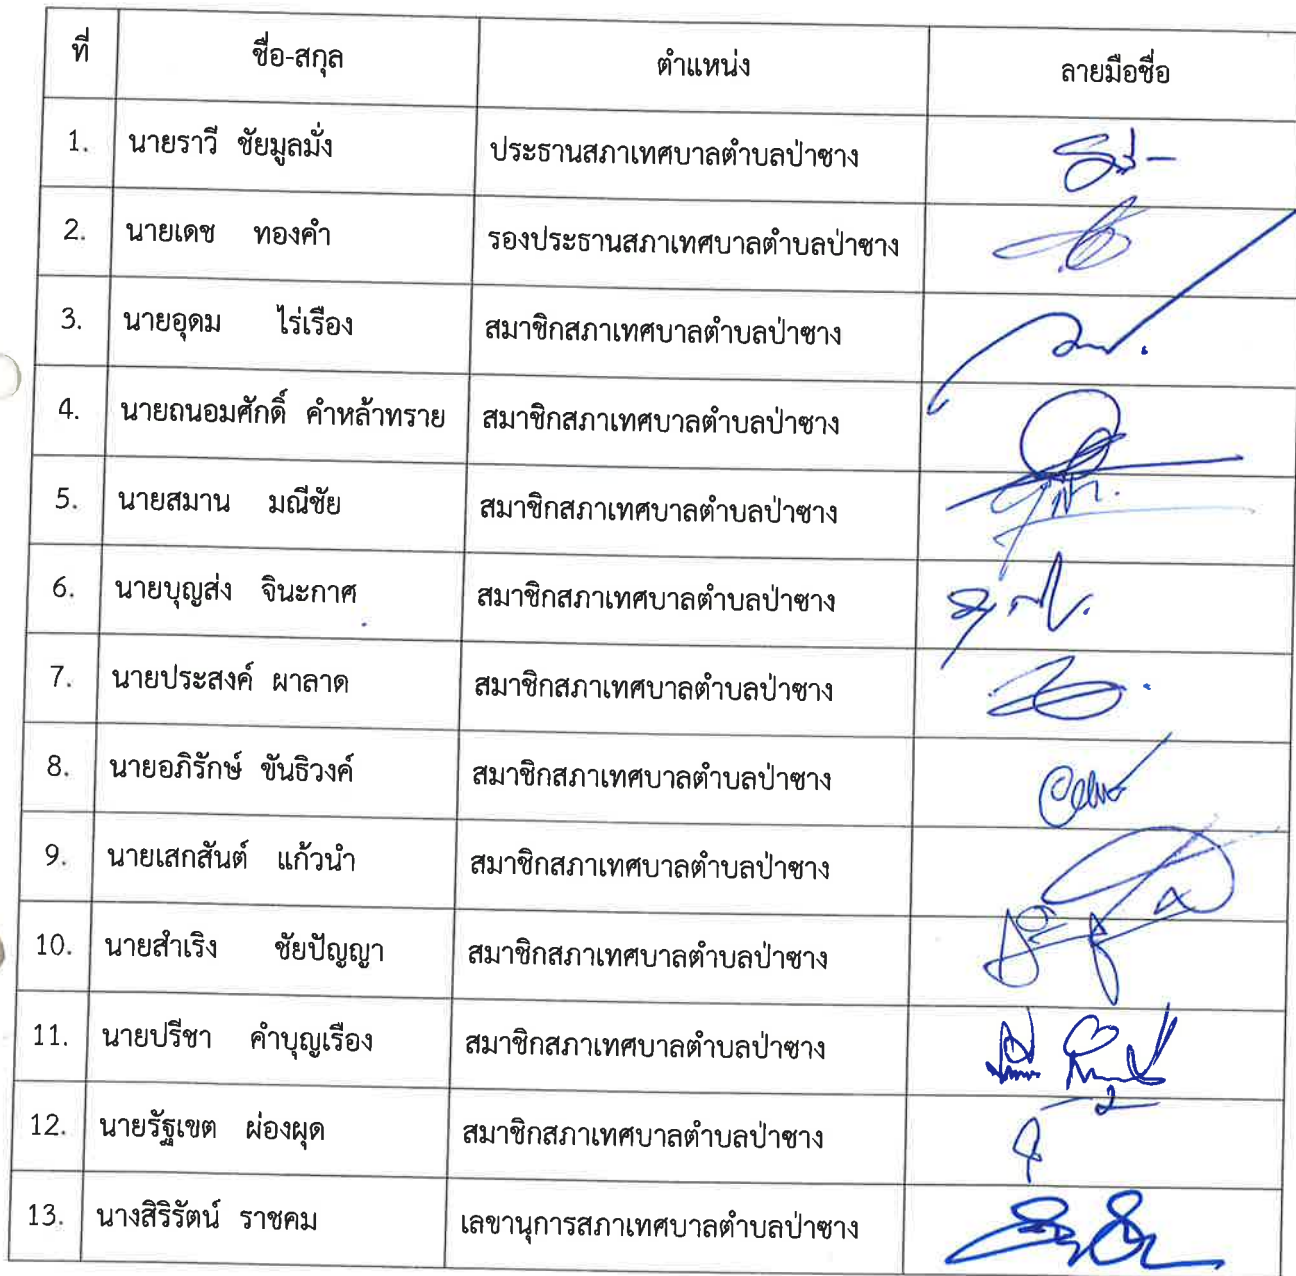 ที่ ชื่อ-สกุล ตำแหน่ง ลายมือชื่อ
1. นายราวี ชัยมูลมั่ง ประธานสภาเทศบาลตำบลป่าซาง
2. นายเดช ทองคำ รองประธานสภาเทศบาลตำบลป่าซาง
3. นายอุดม ไร่เรือง สมาชิกสภาเทศบาลตำบลป่าซาง
4. นายถนอมศักดิ์ คำหล้าทราย สมาชิกสภาเทศบาลตำบลป่าซาง
5. นายสมาน มณีชัย สมาชิกสภาเทศบาลตำบลป่าซาง
6. นายบุญส่ง จินะกาศ สมาชิกสภาเทศบาลตำบลป่าซาง
7. นายประสงค์ ผาลาด สมาชิกสภาเทศบาลตำบลป่าซาง
8. นายอภิรักษ์ ขันธิวงค์ สมาชิกสภาเทศบาลตำบลป่าซาง
9. นายเสกสันต์ แก้วนำ สมาชิกสภาเทศบาลตำบลป่าซาง
10. นายสำเริง ชัยปัญญา สมาชิกสภาเทศบาลตำบลป่าซาง
11. นายปรีชา คำบุญเรือง สมาชิกสภาเทศบาลตำบลป่าซาง
12. นายรัฐเขต ผ่องผุด สมาชิกสภาเทศบาลตำบลป่าซาง
13. นางสิริรัตน์ ราชคม เลขานุการสภาเทศบาลตำบลป่าซาง